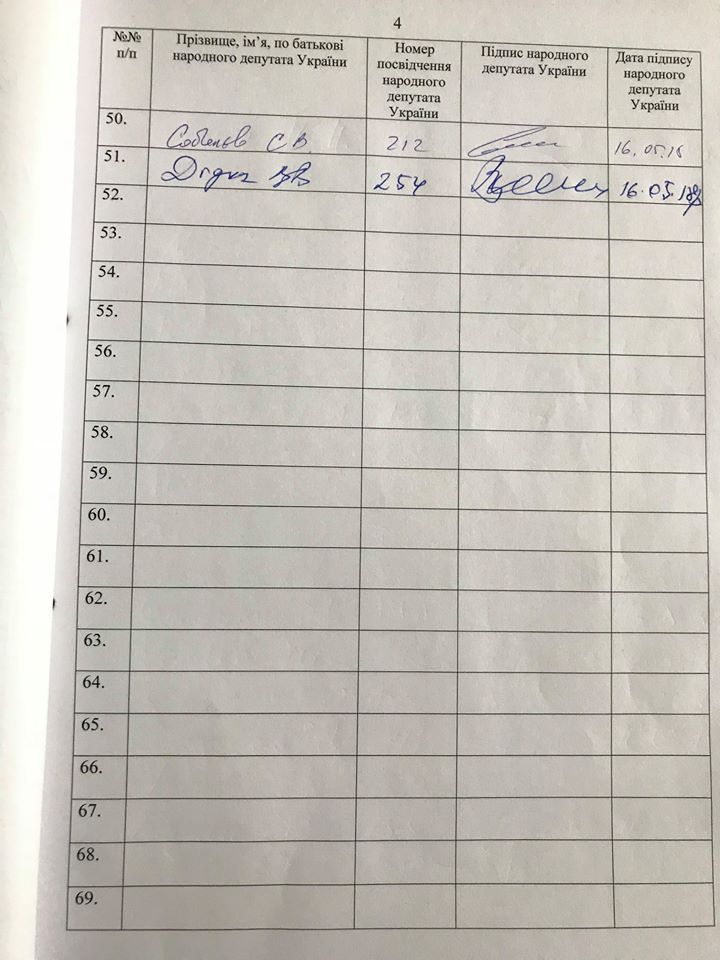 4
№№ Прізвище, ім’я, по батькові Номер Підпис народного Дата підпису
п/п народного депутата України посвідчення депутата України народного
народного депутата
депутата України
України
50. Соболєв С В. 212 16.05.18
51. 254 16.05.18
52.
53.
54.
55.
56.
57.
58.
59.
60.
61.
62.
63.
64.
65.
66.
67.
68.
69.